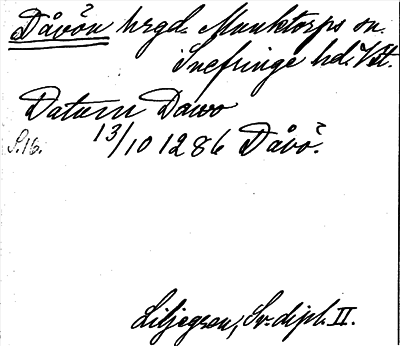 Dåvön hrgd. Munktorps sn.
Snefringe hd. Vstm.
Datum Dawo
S.16. 13/10 1286 Dåvö.
Liljegren, Sv. dipl. II.